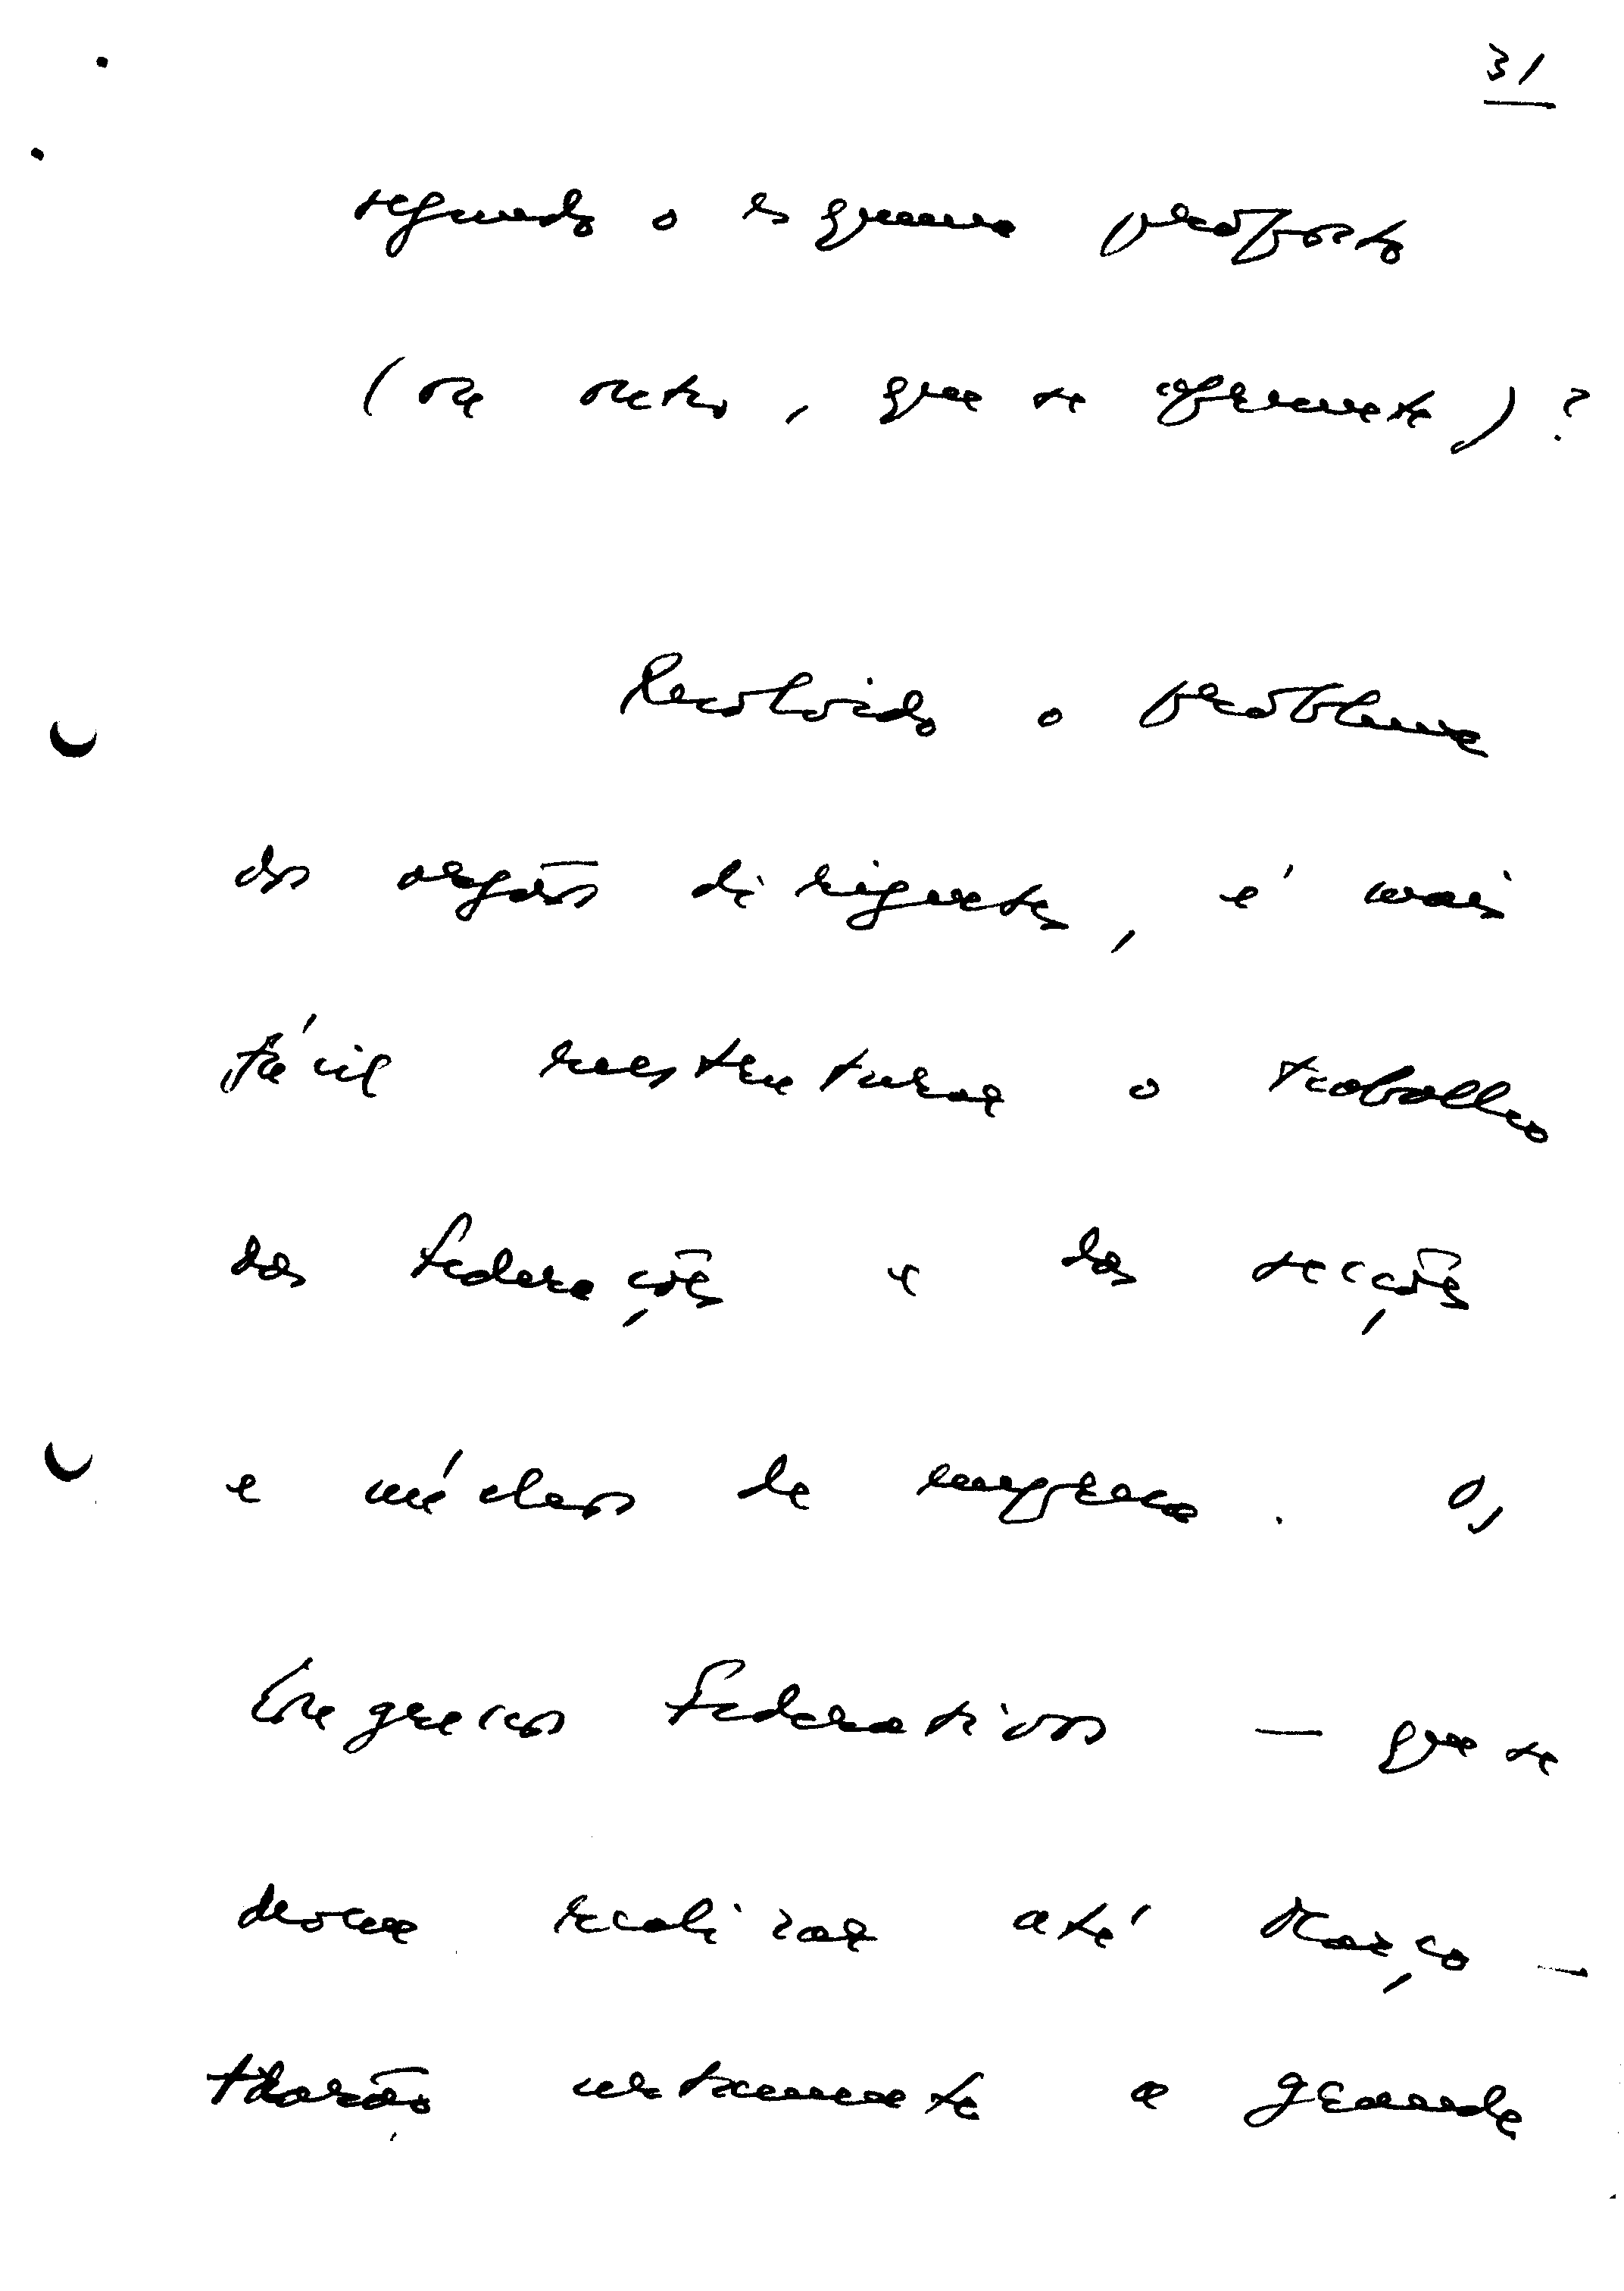 31
segundo o esquema proposto
(ou outro, que se apresente)?
Resolvido o problema
dos orgãos dirigentes, é mais
fácil reestruturar o trabalho
das federações e das secções
e núcleos de empresa. Os
Congressos Federativos — que se
devem realizar até Março —
terão certamente a grande